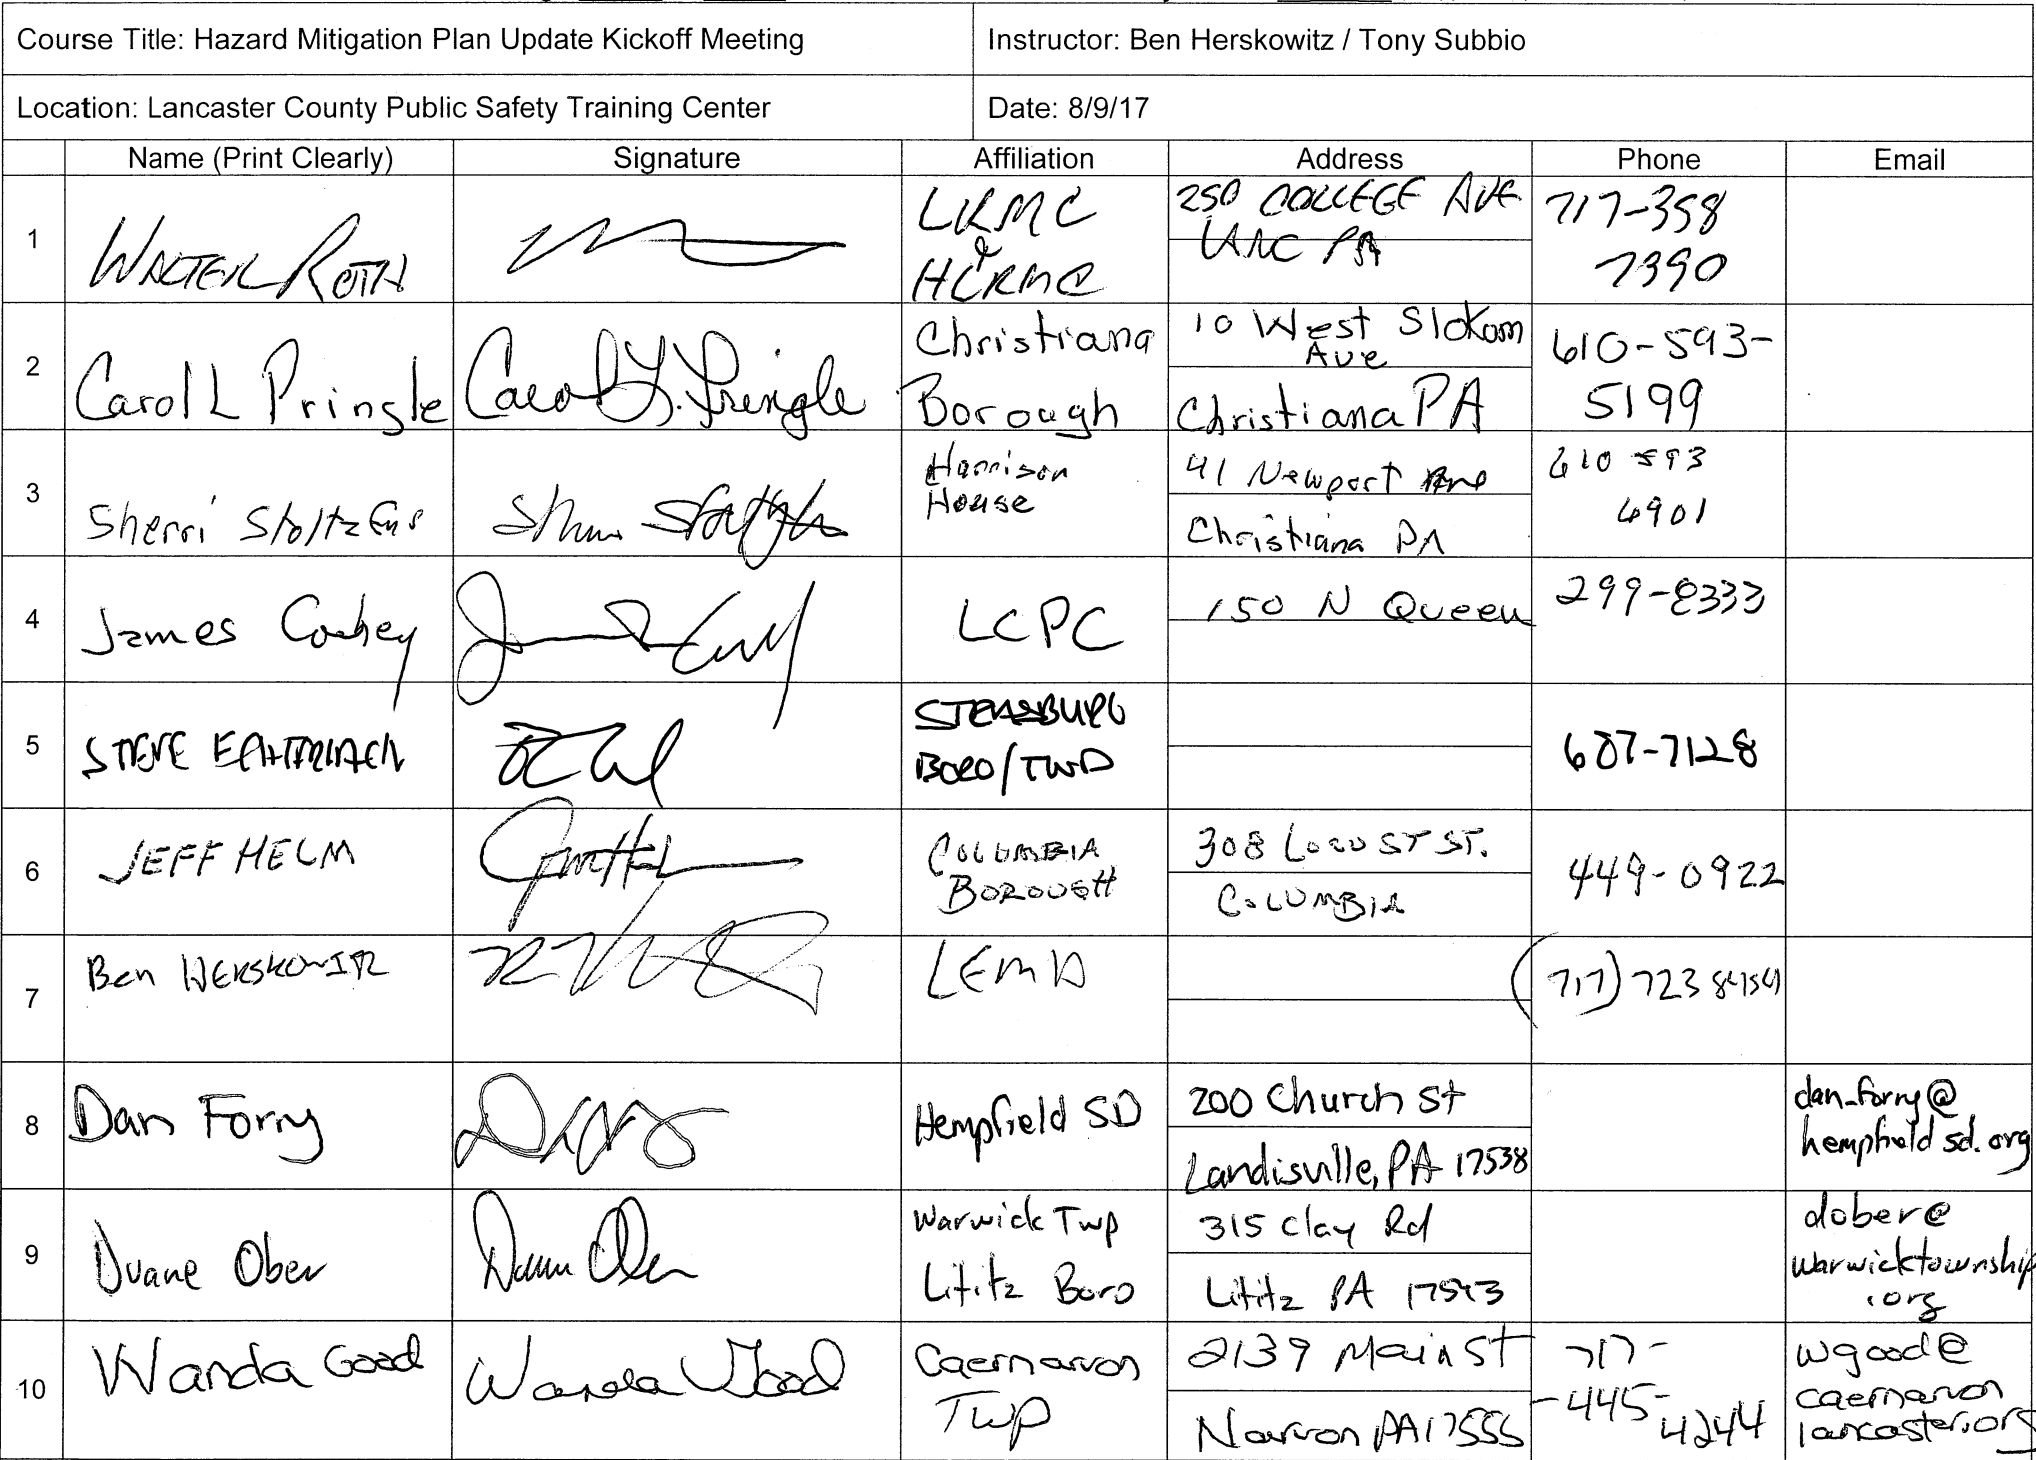 Course Title: Hazard Mitigation Plan Update Kickoff Meeting
Instructor: Ben Herskowitz / Tony Subbio
Location: Lancaster County Public Safety Training Center
Date: 8/9/17
Name (Print Clearly) Signature Affiliation Address Phone Email
1
WALTER ROTH
LRMC
&
HCRMC
250 COLLEGE AVE
LANC PA
717-358
7390
2
Carol L Pringle
Carol L. Pringle
Christiana
Borough
10 West Slokom
Ave
Christiana PA
610-593-
5199
3
Sherri Stoltzfus
Harrison
House
41 Newport
Christiana PA
610 593
6901
4
James Cowhey
LCPC
150 N Queen
299-8333
5
STEVE
STRASBURG
BORO/TWP
687-7128
6
JEFF HELM
COLUMBIA
BOROUGH
308 LOCUST ST.
COLUMBIA
449-0922
7
Ben HERSKOWITZ
LEMA
(717) 723
8
Dan Forry
Hempfield SD
200 Church St
Landisville, PA 17538
dan_forry@
hempfieldsd.org
9
Duane Ober
Duane Ober
Warwick Twp
Lititz Boro
315 Clay Rd
Lititz PA 17543
dober@
warwicktownship
.org
10
Wanda Good
Wanda Good
Caernarvon
Twp
2139 Main St
Narvon PA 17555
717-
-445-
4244
wgood@
caernarvon
lancaster.org